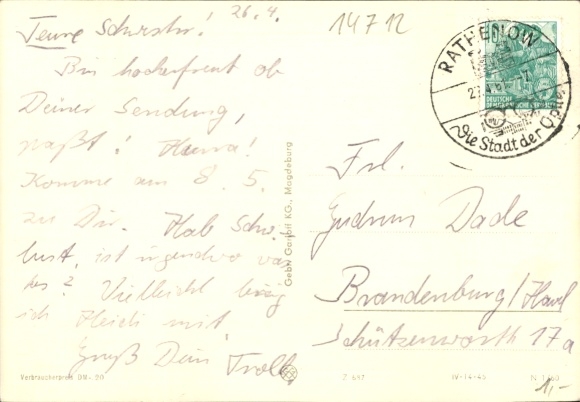 26.4.
Teure Schwester!
Bin hocherfreut ob
Deiner Sendung,
paßt! Hurra!
Komme am 8.5.
zu Dir. Hab
lust, ist irgendwo
Vielleicht
ich mit
Gruß Dein Troll
14712
RATHENOW
Die Stadt der Optik
DEUTSCHE
DEMOKRATISCHE REPUBLIK
Gebr. Garloff KG., Magdeburg
Frl.
Gudrun Dade
Brandenburg/Havel
17a
Verbraucherpreis DM -.20
Z 597
IV-14-45
1,-